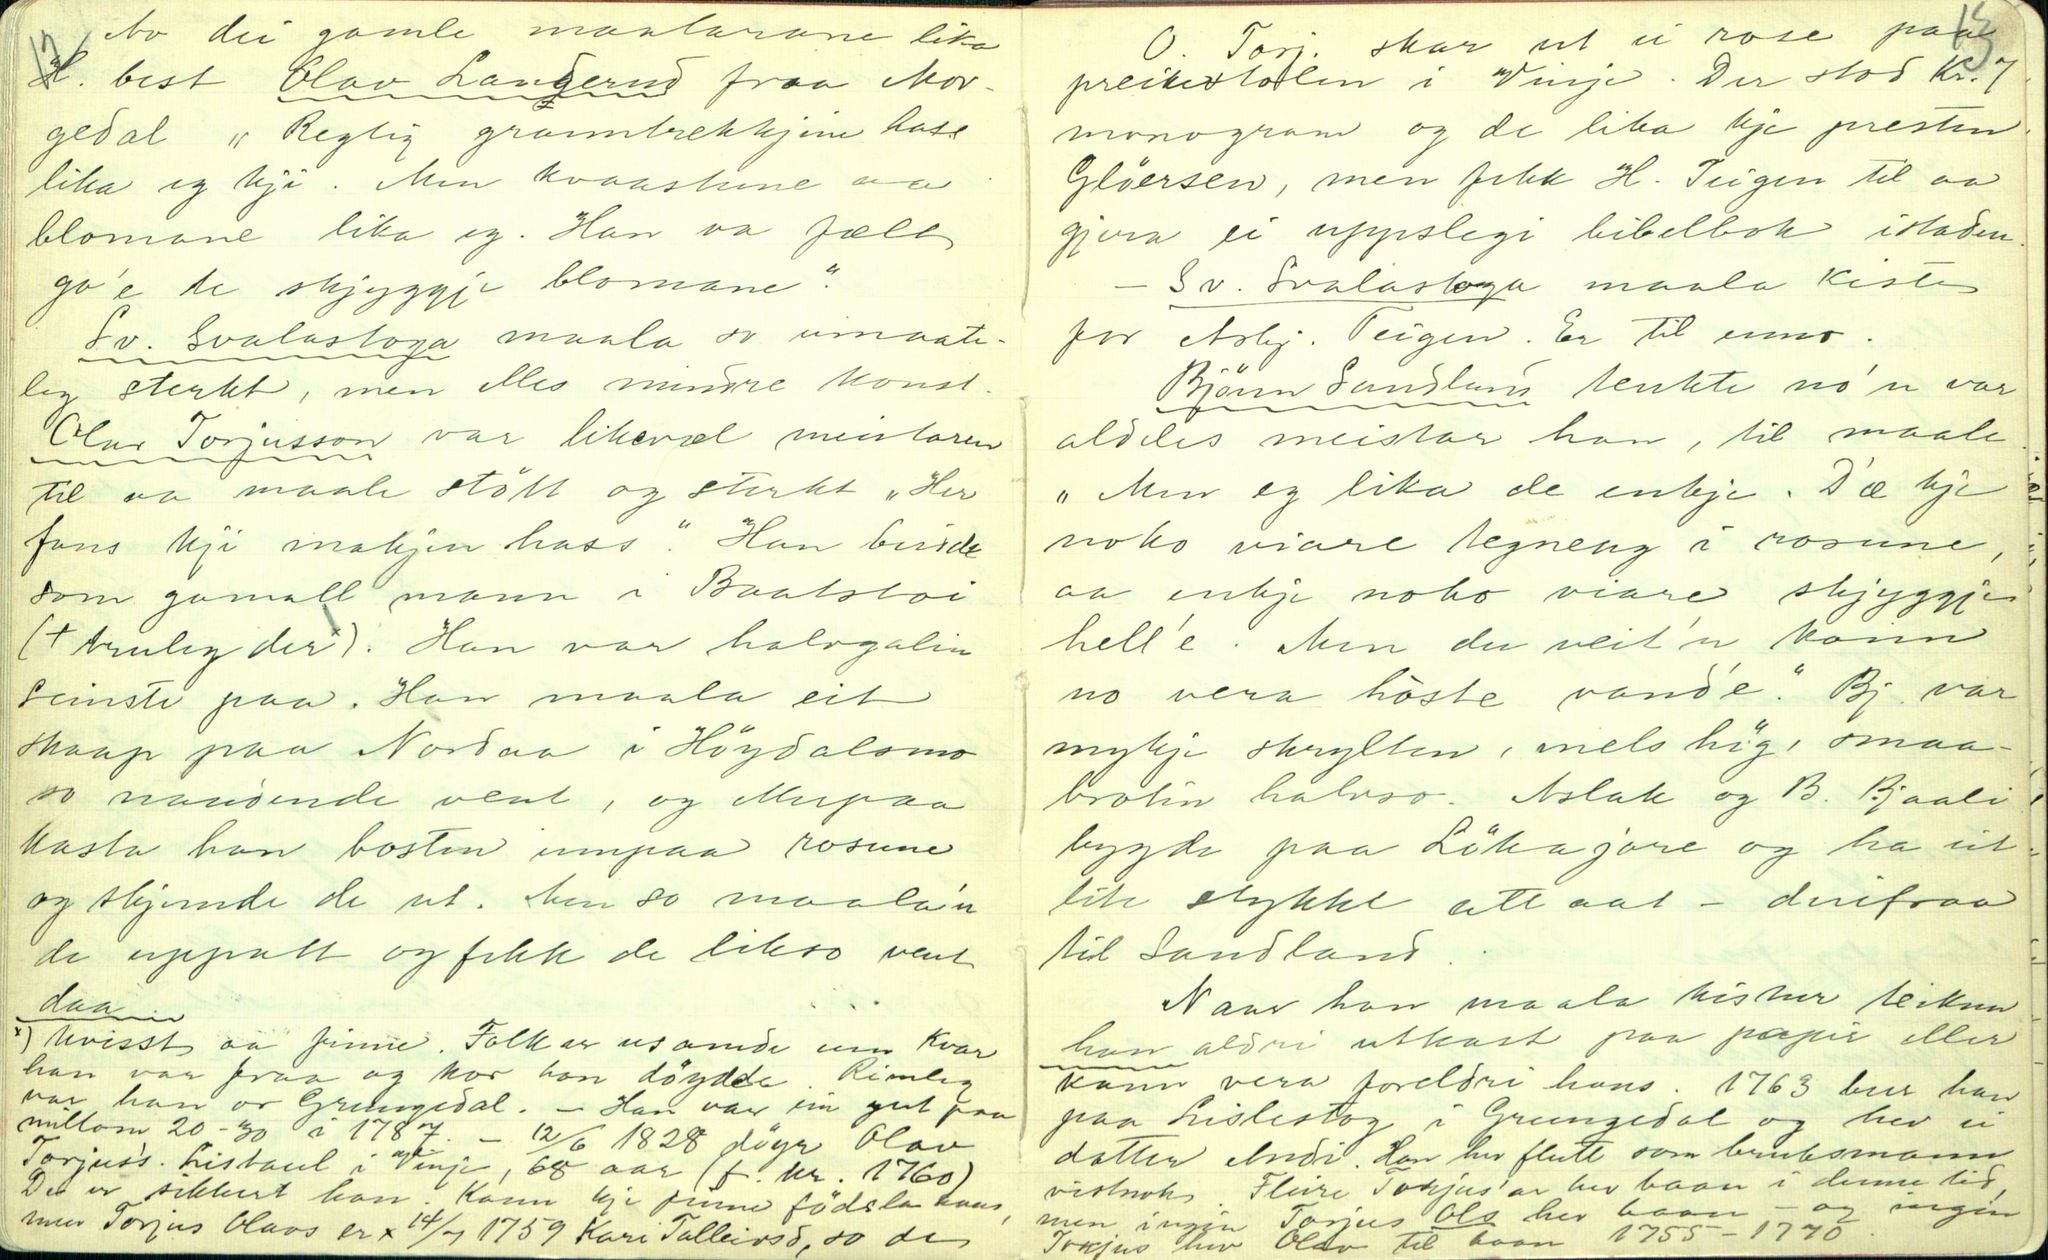 12
Av dei gamle maalarane lika
H. best Olav Langerud fraa Mor-
gedal „Regtig granntrekkjine hass
lika eg kji. Men kvaastune aa
blomane lika eg. Han va fælt
go'e te skjyggje blomane".
Sv. Svalastoga maala so umaate-
leg sterkt, men elles mindre konst.
Olav Torjusson var likevæl meistaren
til aa maale stött og sterkt „Her
fans kji makjen hass." Han budde
som gamall mann i Baatstoi
(+ truleg der x). Han var halvgalin
seinste paa. Han maala eit
skaap paa Nordaa i Höydalsmo
so naudende vent, og
kasta han bosten innpaa rosune
og skjemde de ut. Men so maala'n
de uppatt og fekk de likso vent
daa
x) Uvisst aa finne. Folk er usamde um kvar
han var fraa og kor han döydde. Rimeleg
var han or Grungedal. – Han var ein gut paa
millom 20-30 i 1787. – 12/6 1828 döyr Olav
Torjuss. Listaul i Vinje, 68 aar (f. kr. 1760)
De er sikkert han. Kann kje finne födsla hans,
men Torjus Olavs er x 14/7 1759 Kari Talleivsd, so de
13
O. Torj. skar ut ei rose paa
preikestolen i Vinje. Der stod Kr. 7
monogram og de lika kje presten
Glöersen, men fekk H. Teigen til aa
gjera ei uppslegi bibelbok istaden.
– Sv. Svalastoga maala kiste
for Asbj. Teigen. Er til enno.
Björn Sandland tenkte no'n var
aldeles meistar han, til maale
„Men eg lika de enkje. D'æ kje
noko viare tegneng i rosune,
aa enkje noko viare skjyggje
hell'e. Men du veit'n kann
no vera höste vand'e." Bj. var
mykje skrylten, mels hög, smaa-
brotin halvso. Aslak og B. Bjaali
bygde paa Lökajore og ha eit
lite stykke attaat – derifraa
til Sandland.
Naar han maala kistur teikna
han aldri utkast paa papir eller
kann vera foreldri hans. 1763 bur han
paa Lislestog i Grungedal og hev ei
dotter Andi. Han hev flutt som bruksmann
vistnok. Fleire Torjus'ar hev baan i denne tid,
men ingin Torjus Ols hev baan – og ingin
Torjus hev Olav til baan 1755–1770.